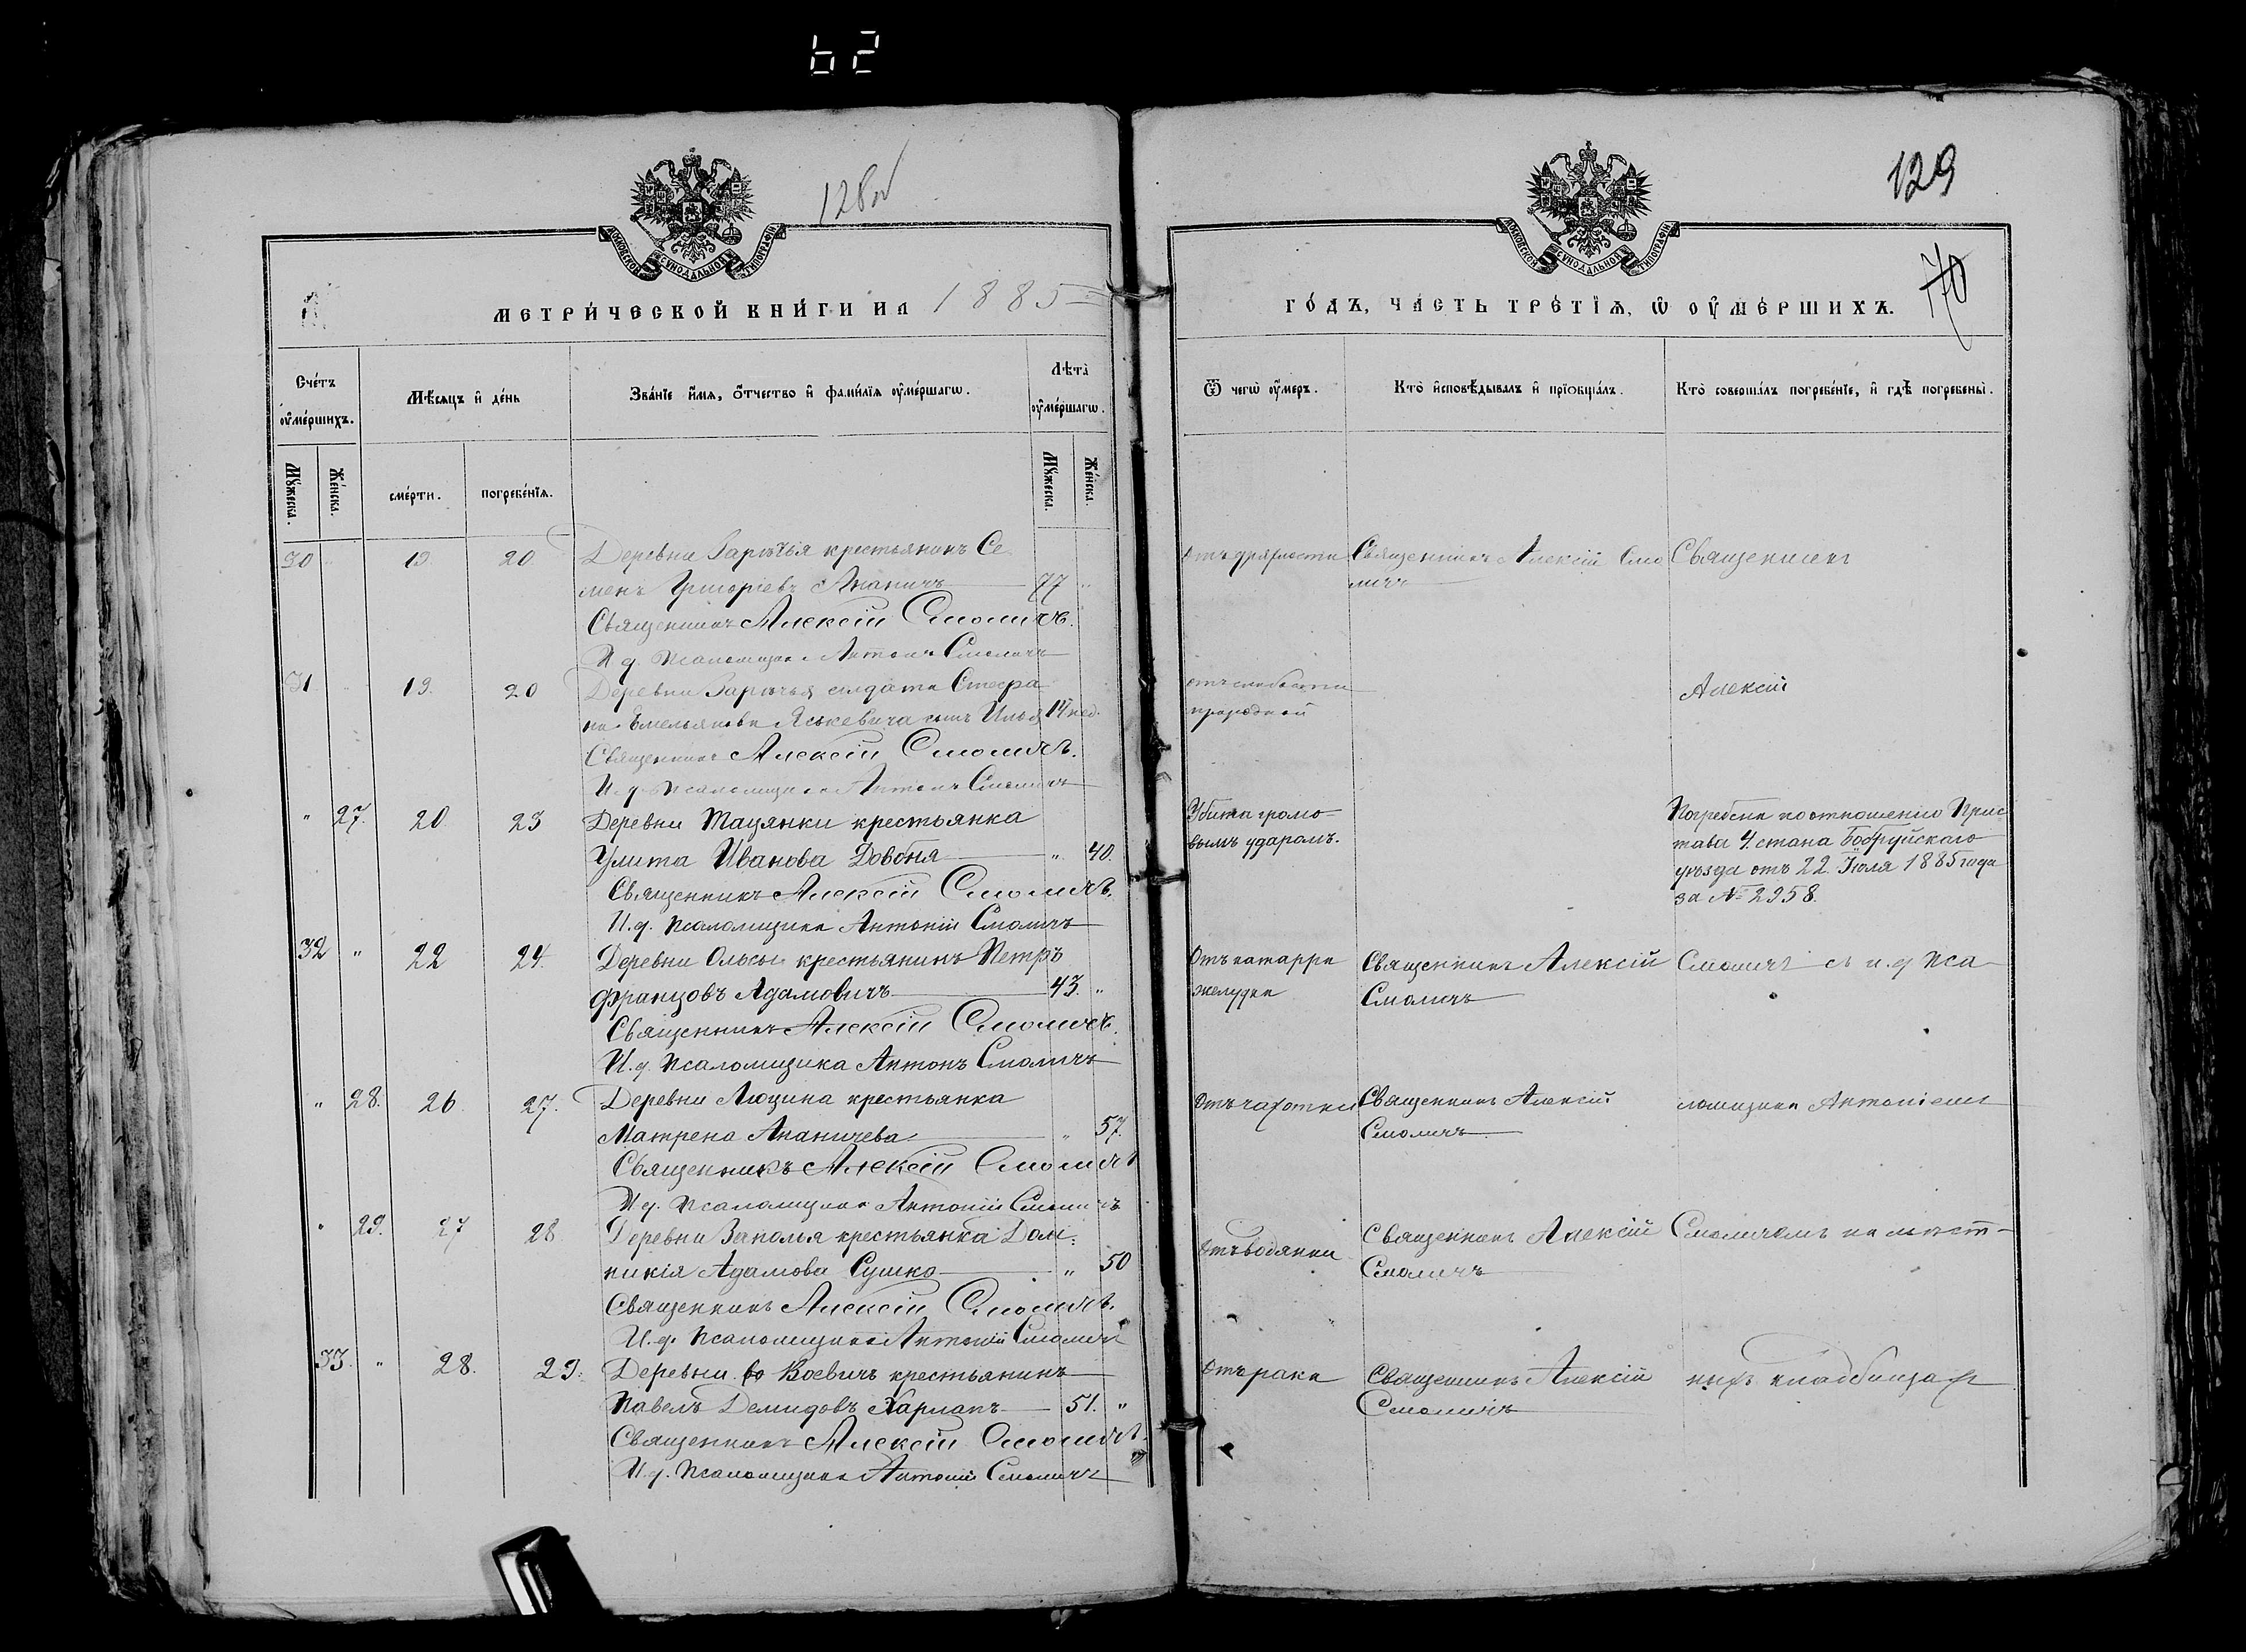 62
128 об
129
70
МОСКОВСКОЙ СѴНОДАЛЬНОЙ ТИПОГРАФІИ
МОСКОВСКОЙ СѴНОДАЛЬНОЙ ТИПОГРАФІИ
МЕТРИ́ЧЕСКОЙ КНИ́ГИ НА 1885
ГО́ДЪ, ЧА́СТЬ ТРЕ́ТІѦ, Ѡ ОУ҆МЕ́РШИХЪ.
Сче́тъ оу҆ме́ршихъ.
Мѣ́сяцъ и҆ де́нь
Зва́нїе и҆́мѧ, о҆́тчество и҆ фами́лїѧ оу҆ме́ршагѡ.
Лѣ́та оу҆ме́ршагѡ.
Ѿ чегѡ̀ оу҆́меръ.
Кто̀ и҆сповѣ́дывалъ и҆ прїѡбща́лъ.
Кто̀ соверша́лъ погребе́нїе, и҆ гдѣ̀ погребены̀.
Мꙋ́жеска.
Же́нска.
сме́рти.
погребе́нїѧ.
Мꙋ́жеска.
Же́нска.
30 19. 20 Деревни Зарѣчья крестьянинъ Се
менъ Григоріевъ Ананичъ 77 "
Священникъ Алексій Смоличъ.
И. д. Псаломщика Антонъ Смоличъ
Отъ дряхлости
Священникъ Алексій Смо
личъ
Священникъ
31 19. 20 Деревни Зарѣчья солдата Стефа
на Емельянова Яськевича сынъ Илья 14 нед.
Священникъ Алексій Смоличъ.
И. д. Псаломщика Антонъ Смоличъ
отъ слабости
природной
Алексій
" 27. 20 23 Деревни Мацянки крестьянка
Улита Иванова Довбня " 40.
Священникъ Алексій Смоличъ.
И. д. Псаломщика Антоній Смоличъ
Убита громо-
вымъ ударомъ.
Погребена по отношенію Прис
тава 4. стана Бобруйскаго
уѣзда отъ 22. Іюля 1885 года
за № 2958.
32 " 22 24. Деревни Ольсы крестьянинъ Петръ
Францовъ Адамовичъ 43. "
Священникъ Алексій Смоличъ.
И. д. Псаломщика Антонъ Смоличъ
Отъ катарра
желудка
Священникъ Алексій
Смоличъ
Смоличъ съ и. д. Пса-
" 28. 26 27. Деревни Люцина крестьянка
Матрена Ананичева " 57.
Священникъ Алексій Смоличъ
И. д. Псаломщика Антоній Смоличъ
Отъ чахотки
Священникъ Алексій
Смоличъ
ломщика Антоніемъ
" 29. 27 28 Деревни Заполья крестьянка Доми
никія Адамова Сушко " 50
Священникъ Алексій Смоличъ.
И. д. Псаломщика Антоній Смоличъ
Отъ водянки
Священникъ Алексій
Смоличъ
Смоличемъ на мѣст-
33. " 28. 29. Деревни Воевичъ крестьянинъ
Павелъ Демидовъ Харлапъ 51. "
Священникъ Алексій Смоличъ.
И. д. Псаломщика Антоній Смоличъ
Отъ рака
Священникъ Алексій
Смоличъ
ныхъ кладбищахъ